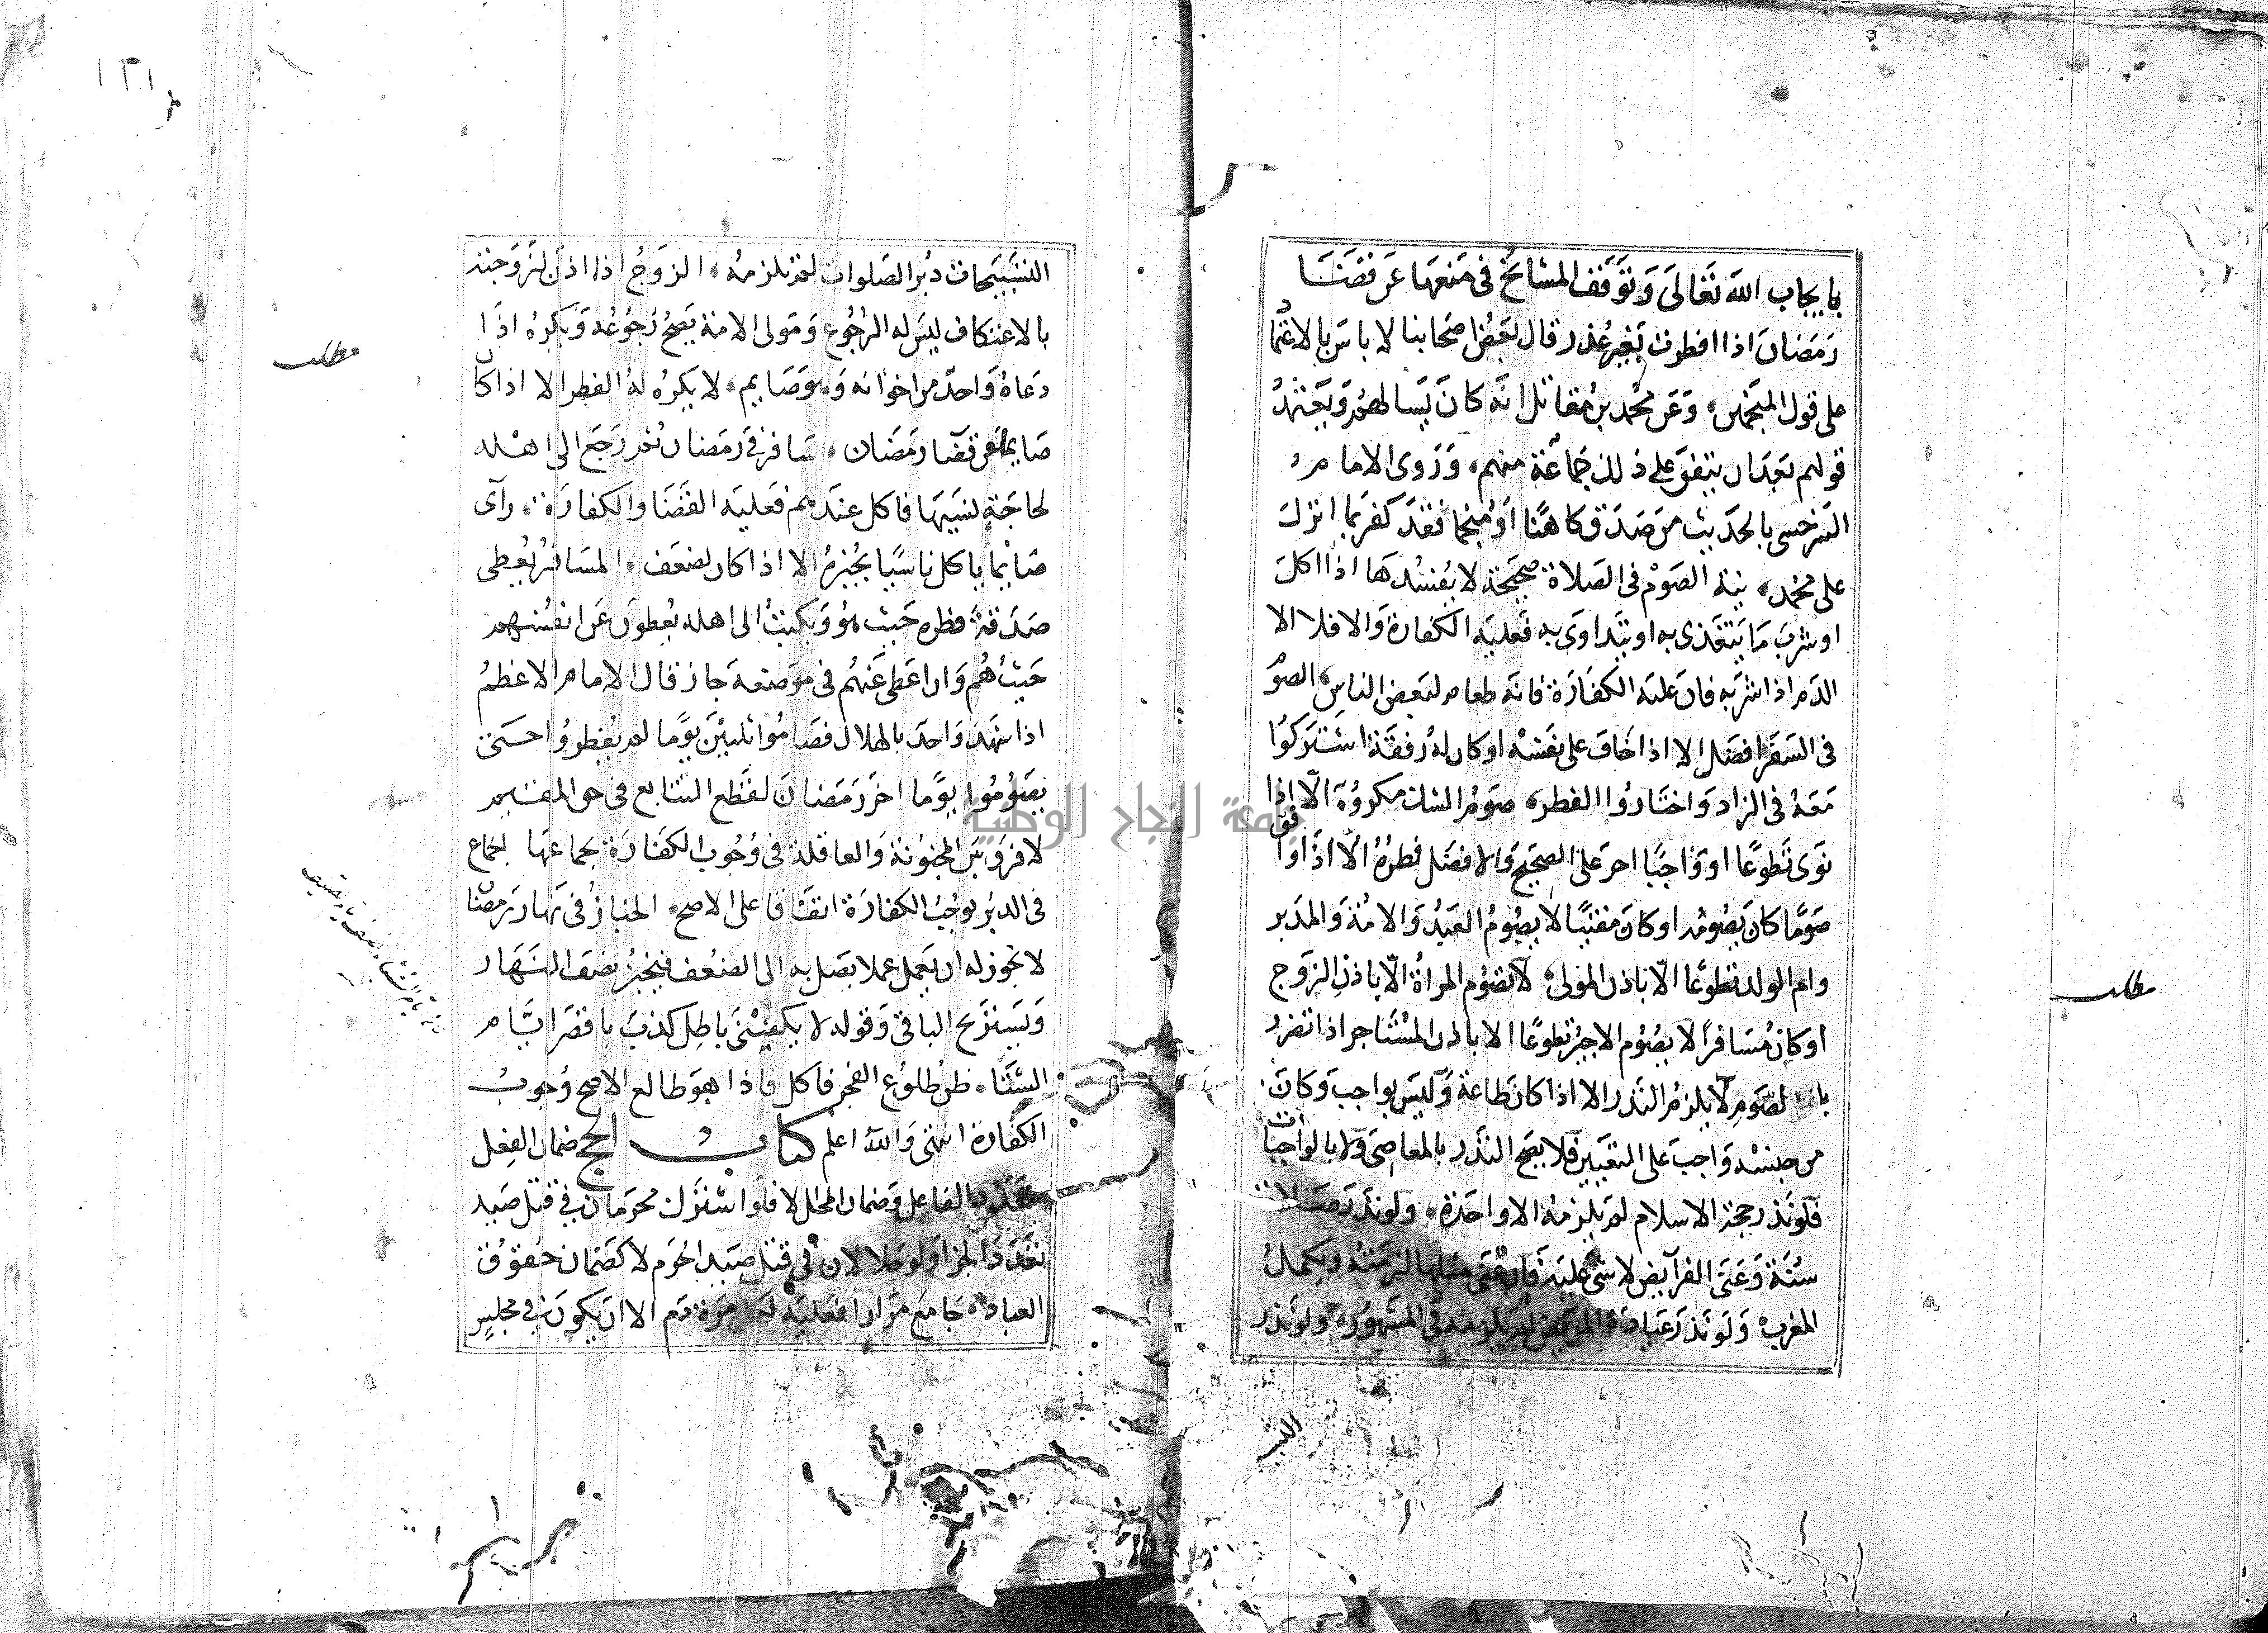 بايجاب الله تعالى وتوقف المشايخ في منعها عن قضا
رمضان اذا افطرت بغير عذر قال بعض اصحابنا لا باس بالاعتماد
على قول المنجمين وعن محمد بن مقاتل انه كان يسالهم ويعتمد
قولهم بعد ان يتفق على ذلك جماعة منهم وروى الامام
السرخسي بالحديث من صدق كاهنا او منجما فقد كفر بما انزل
على محمد نية الصوم في الصلاة صحيحة لا يفسدها اذا اكل
او شرب ما يتغذى به او يتداوى به فعليه الكفارة والا فلا الا
الدم اذا شربه فان عليه الكفارة فانه طعام لبعض الناس الصوم
في السفر افضل الا اذا خاف على نفسه او كان له رفقة اشتركوا
معه في الزاد واختاروا الفطر صوم الشك مكروه الا اذا
نوى تطوعا او واجبا اخر على الصحيح والافضل فطره الا اذا وافق
صوما كان يصومه او كان مفتيا لا يصوم العبد والامة والمدبر
وام الولد تطوعا الا باذن المولى لا تصوم المراة الا باذن الزوج
او كان مسافرا لا يصوم الاجير تطوعا الا باذن المستاجر اذا تضرر
بالصوم لا يلزم النذر الا اذا كان طاعة وليس بواجب وكان
من جنسه واجب على التعيين فلا يصح النذر بالمعاصي ولا بالواجبات
فلو نذر حجة الاسلام لم يلزمه الا واحدة ولو نذر صلاة
سنة وعنى الفرايض لا شي عليه فان عنى مثلها لزمته ويكمل
المغرب ولو نذر عيادة المريض لم يلزمه في المشهور ولو نذر
مطلب
التسبيحات دبر الصلوات لم تلزمه الزوج اذا اذن لزوجته
بالاعتكاف ليس له الرجوع ومولى الامة يصح رجوعه ويكره اذا
دعاه واحد من اخوانه وهو صايم لا يكره له الفطر الا اذا كان
صايما عن قضا رمضان سافر في رمضان ثم رجع الى اهله
لحاجة نسيها فاكل عندهم فعليه القضا والكفارة راى
صايما ياكل ناسيا يخبره الا اذا كان لضعف المسافر يعطي
صدقة فطره حيث هو ويكتب الى اهله يعطون عن انفسهم
حيث هم وان اعطى عنهم في موضعه جاز قال الامام الاعظم
اذا شهد واحد بالهلال فصاموا ثلثين يوما لم يفطروا حتى
يصوموا يوما اخر رمضان لقطع التتابع في حق المقيم
لا فرق بين المجنونة والعاقلة في وجوب الكفارة بجماعها الجماع
في الدبر يوجب الكفارة اتفاقا على الاصح الخباز في نهار رمضان
لا يجوز له ان يعمل عملا يصل به الى الضعف فيخبز نصف النهار
ويستريح الباقي وقوله لا يكفيني باطل كذب باقصر ايام
الشتا ظن طلوع الفجر فاكل فاذا هو طالع الاصح وجوب
الكفارة انتهى والله اعلم كتاب الحج ضمان الفعل
يتعدد بالفاعل وضمان المحل لا فلو اشترك محرمان في قتل صيد
تعدد الجزا ولو حلالان في قتل صيد الحرم لا كضمان حقوق
العباد جامع مرارا فعليه لكل مرة دم الا ان يكون في مجلس
مطلب
١٢١
جامعة النجاح الوطنية